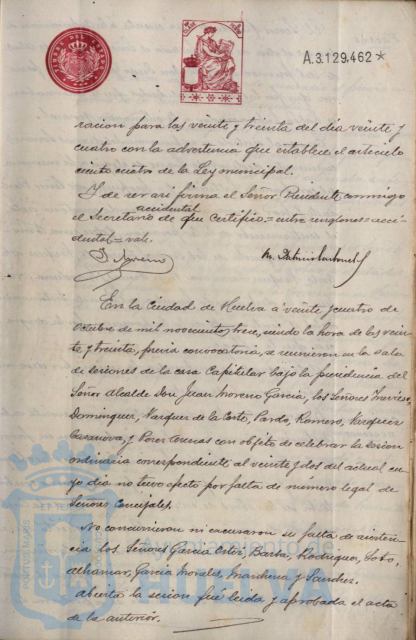 A.3.129.462*
racion para las veinte y treinta del dia veinte y
cuatro con la advertencia que establece el articulo
ciento cuatro de la Ley municipal.
Y de ser asi firma el Señor Presidente conmigo
accidental
el Secretario de que certifico.= entre renglones= acci
dental= vale.
En la Ciudad de Huelva á veinte y cuatro de
Octubre de mil novecientos trece, siendo la hora de las vein-
te y treinta, previa convocatoria, se reunieron en la sala
de sesiones de la casa Capitular bajo la presidencia del
Señor Alcalde Don Juan Moreno Garcia, los Señores
Dominguez, Vazquez de la Corte, Pardo, Romero,
Casanova, y Perez con objeto de celebrar la sesion
ordinaria correspondiente al veinte y dos del actual cu-
yo dia no tuvo efecto por falta de número legal de
Señores Concejales.
No concurrieron ni excusaron su falta de asisten-
cia los Señores Garcia Barba, Rodriguez, Soto,
Garcia Morales, Marchena y Sanchez.
Abierta la sesion fué leida y aprobada el acta
de la anterior.